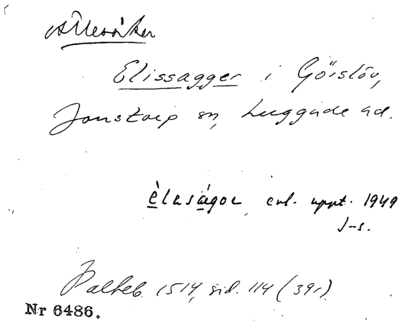 Elissagger i Görslöv,
Jonstorp sn, Luggude hd.
èlaságoɹ, enl. uppt. 1949
J-s.
Palteb. 1514, sid. 114 (39r)
Nr 6486.